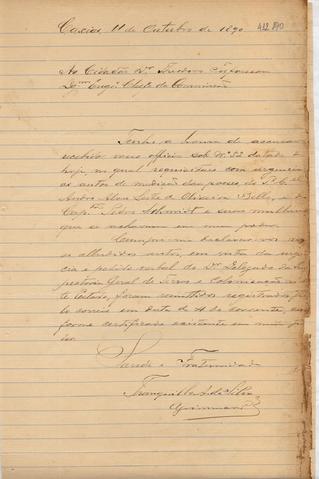 Caxias 11 de Outubro de 1890
Ao Cidadão Dr.
Dig.mo Eng.o Chefe da Commissão
Tenho a honra de accusar
recebido vosso officio sob N.º 82 datado de
hoje no qual requisitaes com urgencia
os autos de medição das posses do
Andre Alves Leite de Oliveira Bello, e do
Cap.m Pedro Schmidt e seus
que se achavam em meu poder.
Cumpre-me declarar-vos que
os alludidos autos, em vista da ur-
gencia e pedido verbal do Dr. Delegado da Ins-
pectoria Geral de Terras e Colonisação n'es-
te Estado, foram remettidos registrados pe-
lo correio em data de 4 do corrente, con-
forme certificado existente em meu po-
der.
Saude e Fraternidade
da Silva
Agrimensor